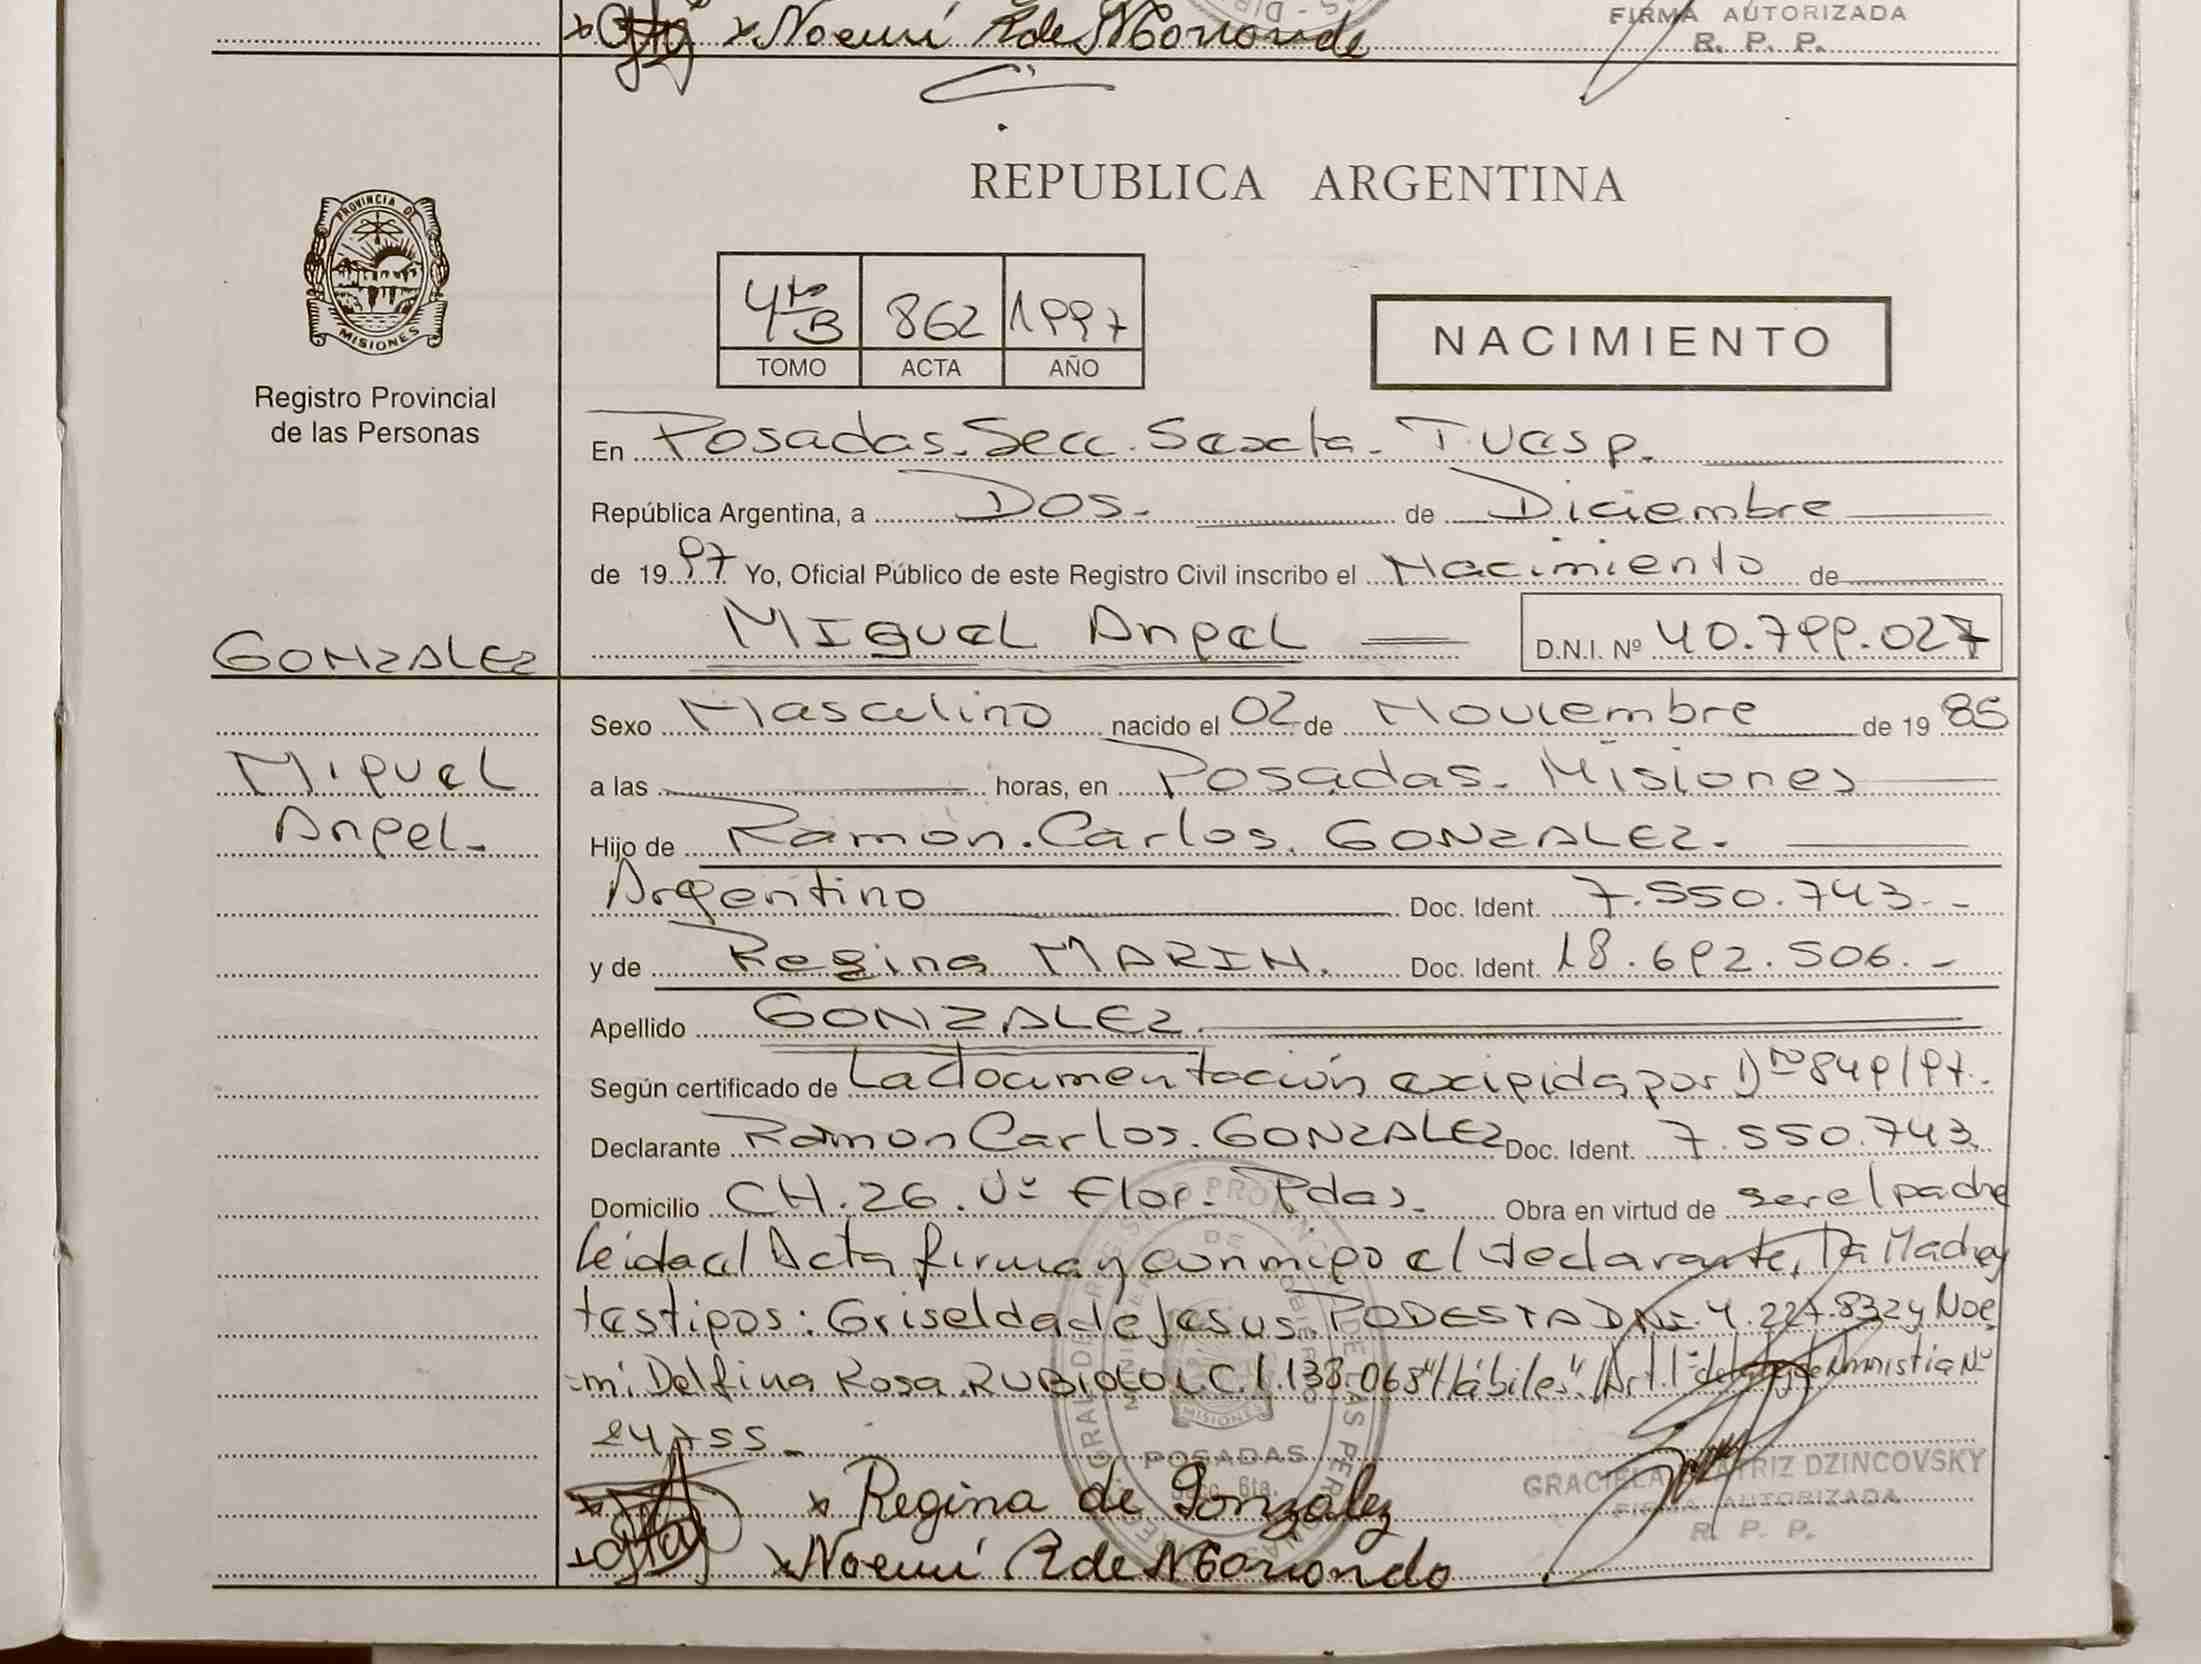 Noemí R de Moriondo
FIRMA AUTORIZADA
R. P. P.
PROVINCIA DE
MISIONES
Registro Provincial
de las Personas
REPUBLICA ARGENTINA
4to B 862 1997
TOMO ACTA AÑO
NACIMIENTO
En Posadas. Secc. Sexta.
República Argentina, a Dos. de Diciembre
de 1997 Yo, Oficial Público de este Registro Civil inscribo el Nacimiento de
GONZALEZ
Miguel
Angel.
Miguel Angel D.N.I. Nº 40.799.027
Sexo Masculino nacido el 02 de Noviembre de 1985
a las horas, en Posadas. Misiones
Hijo de Ramon. Carlos. GONZALEZ.
Argentino Doc. Ident. 7.550.743.-
y de Regina MARIN. Doc. Ident. 18.692.506.-
Apellido GONZALEZ.
Según certificado de La documentación exigida por D Nº 849/97.
Declarante Ramon Carlos. GONZALEZ Doc. Ident. 7.550.743
Domicilio CH. 26. Vº Flor. Pdas. Obra en virtud de ser el padre
leida el Acta firman conmigo el declarante, la Madre y
testigos: Griselda de Jesus. PODESTA DNI. 4.227.832 y Noe
mi Delfina Rosa. RUBIOLO L.C. 1.138.068 "Hábiles". Art. 1º de Amnistia Nº
POSADAS
Secc. 6ta.
Regina de Gonzalez
GRACIELA BEATRIZ DZINCOVSKY
FIRMA AUTORIZADA
R. P. P.
Noemí R de Moriondo